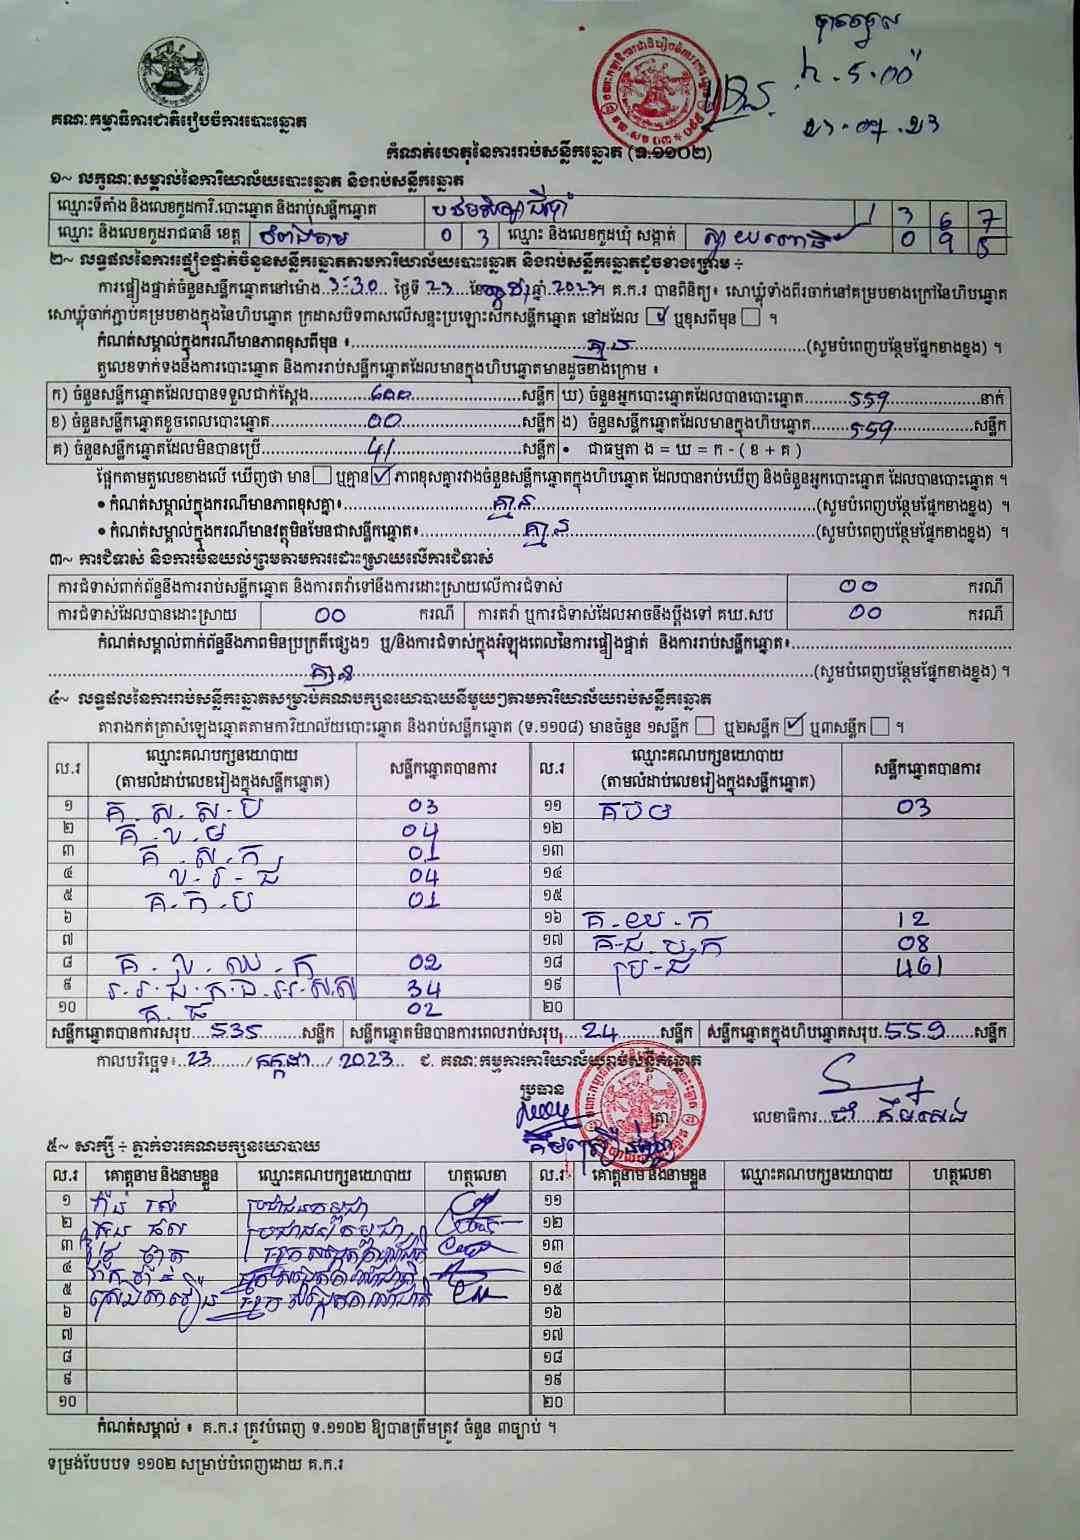 គណៈកម្មាធិការជាតិរៀបចំការបោះឆ្នោត
កំណត់ហេតុនៃការរាប់សន្លឹកឆ្នោត (ទ.១១០២)
១~ លក្ខណៈសម្គាល់នៃការិយាល័យបោះឆ្នោត និងរាប់សន្លឹកឆ្នោត
ឈ្មោះទីតាំង និងលេខកូដការិ.បោះឆ្នោត និងរាប់សន្លឹកឆ្នោត 1 3 6 7
ឈ្មោះ និងលេខកូដរាជធានី ខេត្ត កំពង់ចាម 0 3 ឈ្មោះ និងលេខកូដឃុំ សង្កាត់ 0 9 5
២~ លទ្ធផលនៃការផ្ទៀងផ្ទាត់ចំនួនសន្លឹកឆ្នោតតាមការិយាល័យបោះឆ្នោត និងរាប់សន្លឹកឆ្នោតដូចខាងក្រោម ÷
ការផ្ទៀងផ្ទាត់ចំនួនសន្លឹកឆ្នោតនៅម៉ោង 3:30 ថ្ងៃទី 23 ខែ កក្កដា ឆ្នាំ 2023។ គ.ក.រ បានពិនិត្យ៖ សោឃ្លុំទាំងពីរចាក់នៅគម្របខាងក្រៅនៃហិបឆ្នោត
សោឃ្លុំចាក់ភ្ជាប់គម្របខាងក្នុងនៃហិបឆ្នោត ក្រដាសបិទពាសលើសន្ទះប្រឡោះស៊កសន្លឹកឆ្នោត នៅដដែល ✓ ឬខុសពីមុន ។
កំណត់សម្គាល់ក្នុងករណីមានភាពខុសពីមុន ៖ គ្មាន (សូមបំពេញបន្ថែមផ្នែកខាងខ្នង) ។
តួលេខទាក់ទងនឹងការបោះឆ្នោត និងការរាប់សន្លឹកឆ្នោតដែលមានក្នុងហិបឆ្នោតមានដូចខាងក្រោម ៖
ក) ចំនួនសន្លឹកឆ្នោតដែលបានទទួលជាក់ស្តែង 600 សន្លឹក ឃ) ចំនួនអ្នកបោះឆ្នោតដែលបានបោះឆ្នោត 559 នាក់
ខ) ចំនួនសន្លឹកឆ្នោតខូចពេលបោះឆ្នោត 00 សន្លឹក ង) ចំនួនសន្លឹកឆ្នោតដែលមានក្នុងហិបឆ្នោត 559 សន្លឹក
គ) ចំនួនសន្លឹកឆ្នោតដែលមិនបានប្រើ 41 សន្លឹក • ជាធម្មតា ង = ឃ = ក - ( ខ + គ )
ផ្អែកតាមតួលេខខាងលើ ឃើញថា មាន ឬគ្មាន ✓ ភាពខុសគ្នារវាងចំនួនសន្លឹកឆ្នោតក្នុងហិបឆ្នោត ដែលបានរាប់ឃើញ និងចំនួនអ្នកបោះឆ្នោត ដែលបានបោះឆ្នោត ។
• កំណត់សម្គាល់ក្នុងករណីមានភាពខុសគ្នា៖ គ្មាន (សូមបំពេញបន្ថែមផ្នែកខាងខ្នង) ។
• កំណត់សម្គាល់ក្នុងករណីមានវត្ថុមិនមែនជាសន្លឹកឆ្នោត៖ គ្មាន (សូមបំពេញបន្ថែមផ្នែកខាងខ្នង) ។
៣~ ការជំទាស់ និងការមិនយល់ព្រមតាមការដោះស្រាយលើការជំទាស់
ការជំទាស់ពាក់ព័ន្ធនឹងការរាប់សន្លឹកឆ្នោត និងការតវ៉ាទៅនឹងការដោះស្រាយលើការជំទាស់ 00 ករណី
ការជំទាស់ដែលបានដោះស្រាយ 00 ករណី ការតវ៉ា ឬការជំទាស់ដែលអាចនឹងប្តឹងទៅ គឃ.សប 00 ករណី
កំណត់សម្គាល់ពាក់ព័ន្ធនឹងភាពមិនប្រក្រតីផ្សេងៗ ឬ/និងការជំទាស់ក្នុងអំឡុងពេលនៃការផ្ទៀងផ្ទាត់ និងការរាប់សន្លឹកឆ្នោត៖
គ្មាន (សូមបំពេញបន្ថែមផ្នែកខាងខ្នង) ។
៤~ លទ្ធផលនៃការរាប់សន្លឹកឆ្នោតសម្រាប់គណបក្សនយោបាយនីមួយៗតាមការិយាល័យរាប់សន្លឹកឆ្នោត
តារាងកត់ត្រាសំឡេងឆ្នោតតាមការិយាល័យបោះឆ្នោត និងរាប់សន្លឹកឆ្នោត (ទ.១១០៨) មានចំនួន ១សន្លឹក ឬ២សន្លឹក ✓ ឬ៣សន្លឹក ។
ល.រ ឈ្មោះគណបក្សនយោបាយ (តាមលំដាប់លេខរៀងក្នុងសន្លឹកឆ្នោត) សន្លឹកឆ្នោតបានការ ល.រ ឈ្មោះគណបក្សនយោបាយ (តាមលំដាប់លេខរៀងក្នុងសន្លឹកឆ្នោត) សន្លឹកឆ្នោតបានការ
១ គ.ស.ស.ប 03 ១១ គបម 03
២ គ.ខ.ម 04 ១២
៣ គ.ស.ក 01 ១៣
៤ ខ.រ.ជ 04 ១៤
៥ គ.ក.ប 01 ១៥
៦ ១៦ គ.យ.ក 12
៧ ១៧ គ.ជ.ប.ក 08
៨ គ.ខ.ឈ.ក 02 ១៨ ប្រ-ជ 461
៩ 34 ១៩
១០ គ.ធ 02 ២០
សន្លឹកឆ្នោតបានការសរុប 535 សន្លឹក សន្លឹកឆ្នោតមិនបានការពេលរាប់សរុប 24 សន្លឹក សន្លឹកឆ្នោតក្នុងហិបឆ្នោតសរុប 559 សន្លឹក
កាលបរិច្ឆេទ៖ 23 / កក្កដា / 2023 ជ. គណៈកម្មការការិយាល័យរាប់សន្លឹកឆ្នោត
ប្រធាន
ត្រា លេខាធិការ
៥~ សាក្សី ÷ ភ្នាក់ងារគណបក្សនយោបាយ
ល.រ គោត្តនាម និងនាមខ្លួន ឈ្មោះគណបក្សនយោបាយ ហត្ថលេខា ល.រ គោត្តនាម និងនាមខ្លួន ឈ្មោះគណបក្សនយោបាយ ហត្ថលេខា
១ ប្រជាជនកម្ពុជា ១១
២ ប្រជាជនកម្ពុជា ១២
៣ ១៣
៤ ១៤
៥ ១៥
៦ ១៦
៧ ១៧
៨ ១៨
៩ ១៩
១០ ២០
កំណត់សម្គាល់ ៖ គ.ក.រ ត្រូវបំពេញ ទ.១១០២ ឱ្យបានត្រឹមត្រូវ ចំនួន ៣ច្បាប់ ។
ទម្រង់បែបបទ ១១០២ សម្រាប់បំពេញដោយ គ.ក.រ